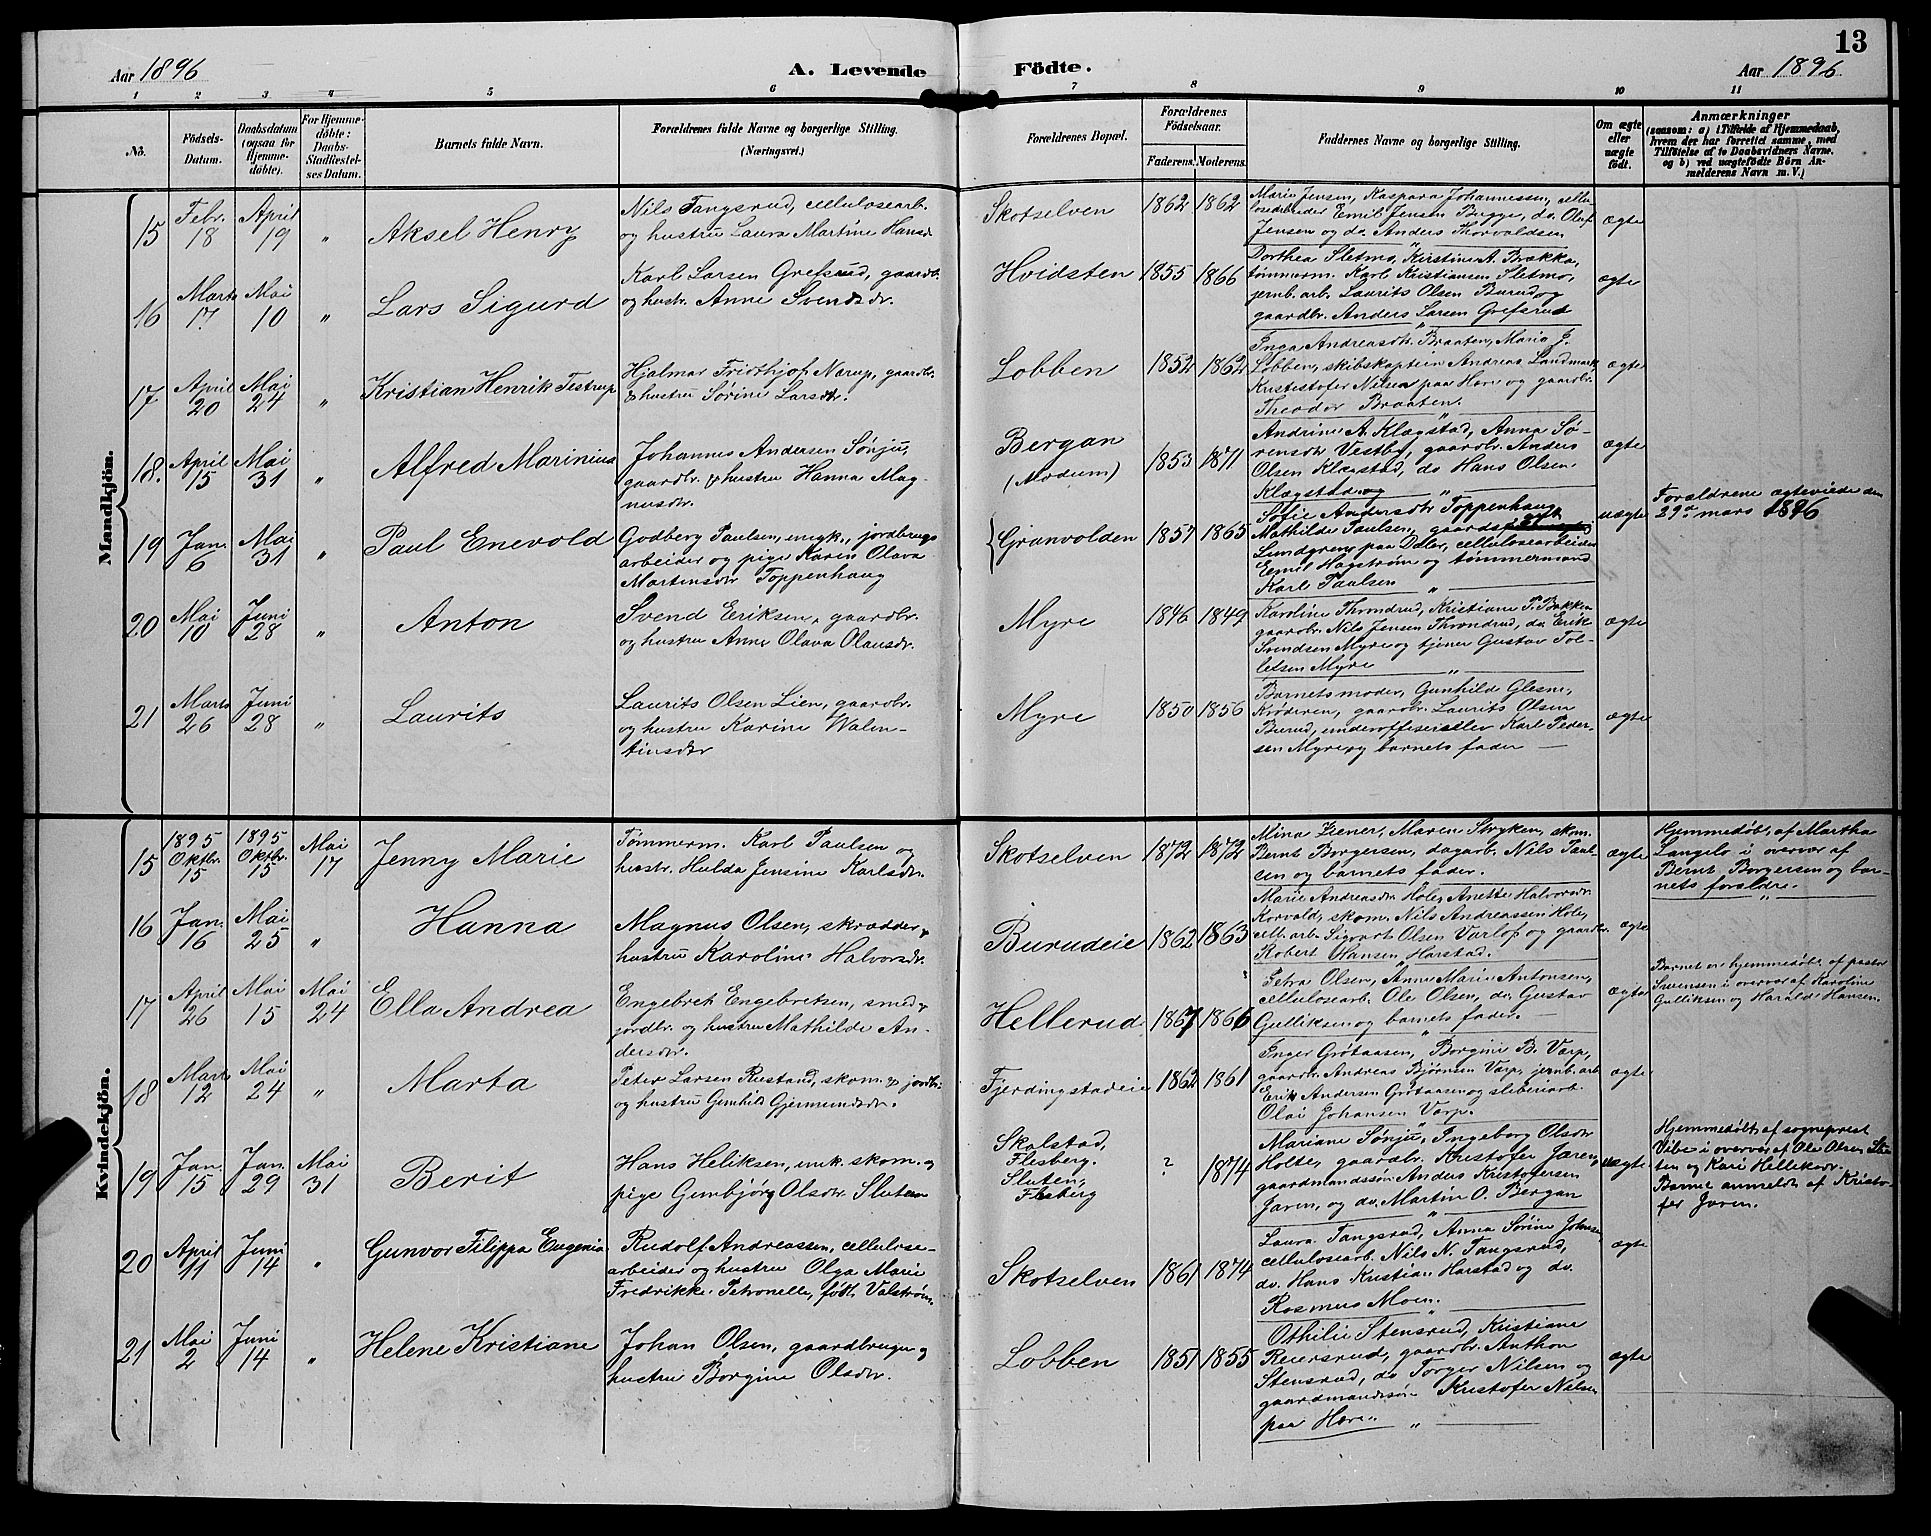 13
Aar 1896
A. Levende Födte.
Aar 1896
1 2 3 4 5 6 7 8 9 10 11
No.
Födsels-Datum.
Daabsdatum (ogsaa for Hjemmedöbte).
For Hjemmedöbte: Daabs-Stadfæstelses Datum.
Barnets fulde Navn.
Forældrenes fulde Navne og borgerlige Stilling.
(Næringsvei.)
Forældrenes Bopæl.
Forældrenes Födselsaar.
Faderens. Moderens.
Faddernes Navne og borgerlige Stilling.
Om ægte eller uægte födt.
Anmærkninger
(saasom: a) i Tilfælde af Hjemmedaab, hvem der har forrettet samme, med Tilföielse af to Daabsvidners Navne. og b) ved uægtefödte Börn Anmelderens Navn m. V.)
Mandkjön.
15 Febr. 18 April 19 "
Aksel Henry
Nils Tangsrud, cellulosearb.
og hustru Laura Martine Hansdr.
Skotselven 1862 1862
Marie Jensen, Kaspara Johannessen, cellu-
losearbeider Emil Jensen Bugge, do. Oluf
Jensen og do. Anders Thorvaldsen
ægte
16 Marts 17. Mai 10 "
Lars Sigurd
Karl Larsen Grefsrud, gaardbr.
og hustr. Anne Svendsdr.
Hvidsten 1855 1866
Dorthea Sletmo, Kirstine A. Brakka,
tømmerm. Karl Kristiansen Sletmo,
jernb. arb. Laurits Olsen Burud og
gaardbr. Anders Larsen Grefsrud
ægte
17 April 20 Mai 24 "
Kristian Henrik Testrup
Hjalmar Fridthjof Nerup, gaardbr.
& hustru Sørine Larsdtr.
Lobben 1852 1862
Inga Andreasdtr. Braaten, Maria J.
Lobben, skibskaptein Andreas Landmark
Kristofer Nilsen paa Hære og gaardbr.
Theodor Braaten.
ægte
18. April 15 Mai 31 "
Alfred Marinius
Johannes Andersen Sønju,
gaardbr. & hustru Hanna Mag-
nusdtr.
Bergan
(Modum)
1853 1871
Andrine A. Klægstad, Anna Sø-
rensdtr Vestby, gaardbr. Anders
Olsen Klægstad, do Hans Olsen
Klægstad og "
ægte
19 Jan. 6 Mai 31 "
Paul Enevold
Godberg Paulsen, ungk., jordbrugs
arbeider og pige Karen Olava
Martinsdtr Toppenhaug
Granvolden 1857 1865
Sofie Andersdtr Toppenhaug,
Mathilde Paulsen, gaards
Lundgren paa Døler, cellulosearbeider
Emil Hagstrøm og tømmermand
Karl Paulsen "
uægte
Forældrene ægteviede den
29de mars 1896
20 Mai 10 Juni 28 "
Anton
Svend Eriksen, gaardbr.
og hustru Anne Olava Olausdr.
Myre 1846 1849
Karoline Throndrud, Kristiane P. Bakken
gaardbr. Nils Jensen Throndrud, do. Erik
Svendsen Myre og tjener Gustav Tol-
lefsen Myre "
ægte
21 Marts 26 Juni 28 "
Laurits
Laurits Olsen Lien, gaardbr.
og hustru Karine Walen-
tinsdtr
Myre 1850 1856
Barnets moder, Gunhild Glesne,
Krøderen, gaardbr. Laurits Olsen
Burud, underofficerselev Karl Peder-
sen Myre og barnets fader
ægte
Kvindekjön.
15 1895 Oktbr. 15 1895 Oktbr. 15 Mai 17
Jenny Marie
Tømmerm. Karl Paulsen og
hustr. Hulda Jensine Karlsdr.
Skotselven 1872 1872
Mina Ziener, Maren Stryken, skom.
Bernt Borgersen, dagarb. Nils Paul-
sen og barnets fader.
ægte
Hjemmedøbt af Martha
Langelo i overvær af
Bernt Borgersen og bar-
nets forældre.
16 Jan. 16 Mai 25 "
Hanna
Magnus Olsen, skrædder &
hustru Karoline Halvorsdr.
Burudeie 1862 1863
Marie Andreasdtr Hole, Anette Halvorsdtr
Korvald, skom. Nils Andreassen Hole,
cell. arb. Sigvart Olsen Varlop og gaardbr.
Robert Hansen Harstad.
ægte
17 April 26 Mai 15 Mai 24
Ella Andrea
Engebret Engebretsen, smed &
jordbr. og hustru Mathilde An-
dersdtr.
Hellerud 1867 1866
Petra Olsen, Anne Marie Antonsen,
cellulosearb. Ole Olsen, do. Gustav
Gulliksen og barnets fader.
ægte
Barnet er hjemmedøbt af pastor
Svensen i overvær af Karoline
Gulliksen og Harald Hansen
18 Marts 12 Mai 24 "
Marta
Peter Larsen Rustand, skom. & jordbr.
og hustru Gunhild Gjermundsdr.
Fjerdingstadeie 1862 1861
Inger Grøtaasen, Borgine B. Varp,
gaardbr. Andreas Bjørnsen Varp, jernb. arb
Erik Andersen Grøtaasen og sliberiarb.
Olai Johansen Varp.
ægte
19 Jan. 15 Jan. 29 Mai 31
Berit
Hans Heliksen, unk. skom. og
pige Gunbjørg Olsdtr. Sluten
Skalstad,
Flesberg.
Sluten,
Flesberg
? 1874
Mariane Sønju, Ingeborg Olsdtr
Holte, gaardbr. Kristofer Jaren,
gaardmandssøn Anders Kristofersen
Jaren, og do. Martin O. Bergan
uægte
Hjemmedøbt af sogneprest
Vibe i overvær af Ole Olsen Slu-
ten og Kari Helliksdr.
Barnet anmeldt af Kristo-
fer Jaren.
20 April 11 Juni 14 "
Gunvor Filippa Eugenia
Rudolf Andreassen, cellulose-
arbeider og hustru Olga Marie
Fredrikke Petronelle, født Valstrøm.
Skotselven 1861 1874
Laura Tangsrud, Anna Sørine Johnsen
cellulosearb. Nils N. Tangsrud,
do. Hans Kristian Harstad og do.
Rasmus Moen.
ægte
21 Mai 2 Juni 14 "
Helene Kristiane
Johan Olsen, gaardbruger og
hustru Borgine Olsdr.
Lobben 1851 1855
Othilie Stensrud, Kristiane
Reiersrud, gaardbr. Anthon
Stensrud, do Torger Nilsen og
gaardmandssøn Kristofer Nilsen
paa Hære. "
ægte